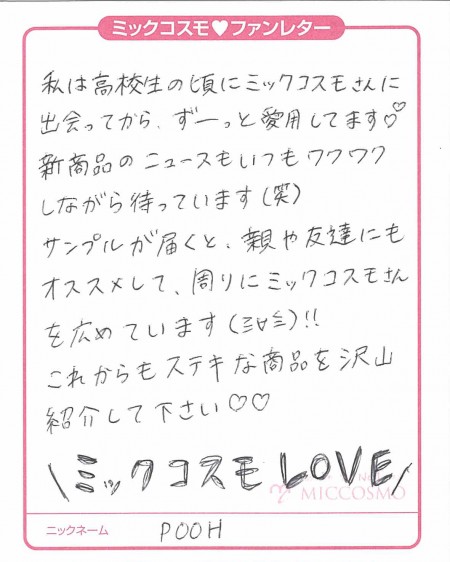 ミックコスモ♥ファンレター
私は高校生の頃にミックコスモさんに
出会ってから、ずーっと愛用してます♡♡
新商品のニュースもいつもワクワク
しながら待っています(笑)
サンプルが届くと、親や友達にも
オススメして、周りにミックコスモさん
を広めています(ミロミ)!!
これからもステキな商品を沢山
紹介して下さい♡♡
\ミックコスモLOVE/
MICCOSMO
ニックネーム POOH